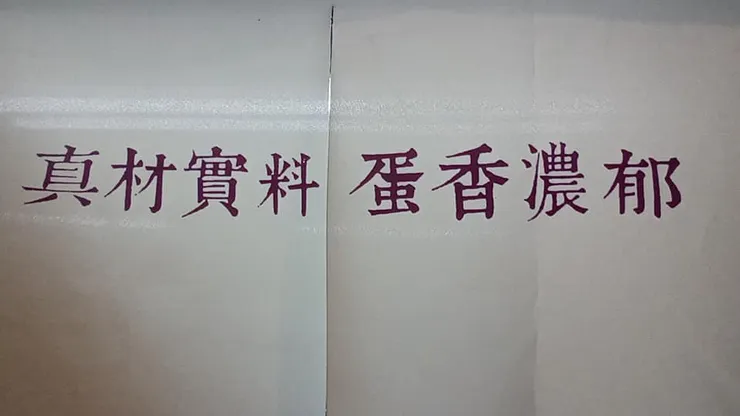 真材實料 蛋香濃郁